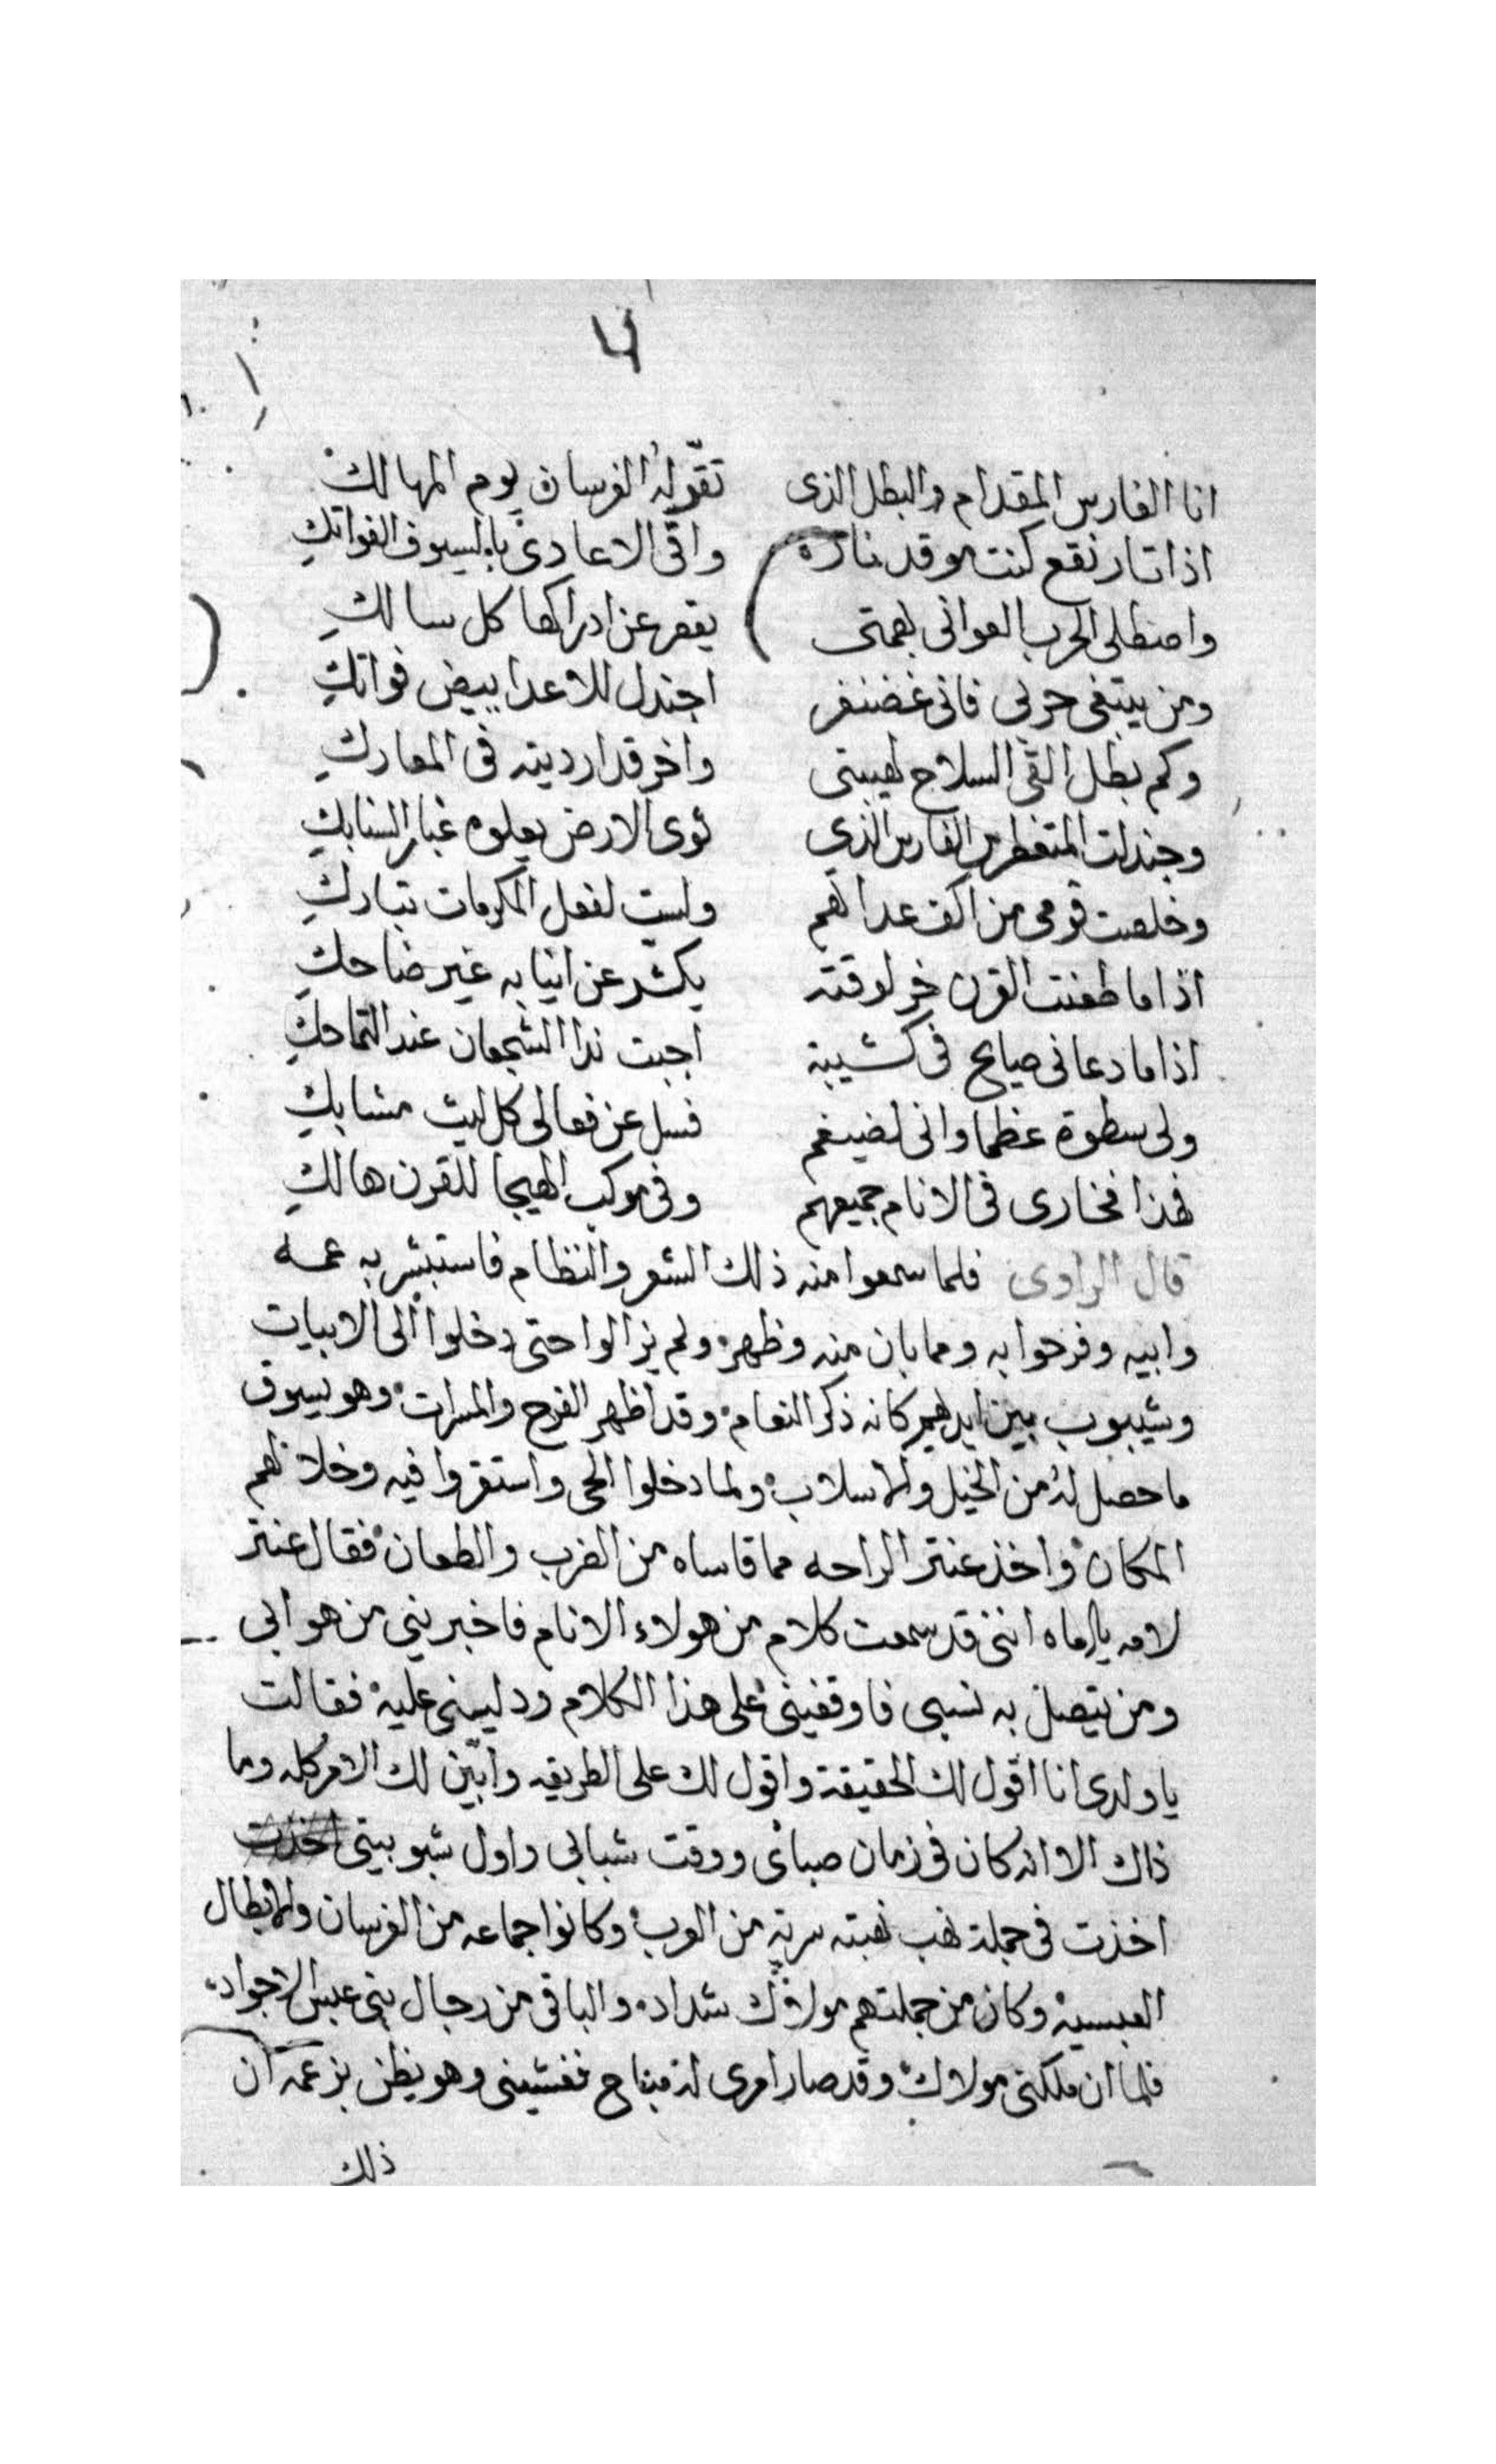 ٤
انا الفارس المقدام والبطل الذى تقرّ لهُ الفرسان يوم المهالك
اذا ثار نقع كنت موقد ناره والقى الاعادى بالسيوف الفواتكِ
واصطلى الحرب العوانى بهمتى يقصر عن ادراكها كل سالكِ
ومن يبتغى حربي فانى غضنفر اجندل للاعدا ببيض فواتكِ
وكم بطل القى السلاح لهيبتى واخر قد ارديته فى المعاركِ
وجندلت المتغطرس الفارس الذي ثوى الارض يعلوه غبار السنابكِ
وخلصت قومى من اكف عدا لهم ولست لفعل المكرمات بتاركِ
اذا ما طعنت القرن خر لوقته يكشّر عن انيابه غير ضاحكِ
اذا ما دعانى صايح فى كتيبة اجبت ندا الشجعان عند التماحكِ
ولى سطوة عظما وانى لضيغم فسل عن فعالى كل ليث مشابكِ
فهذا فخارى فى الانام جميعهم وفى موكب الهيجا للقرن هالكِ
قال الراوى فلما سمعوا منه ذلك الشعر والنظام فاستبشر به عمه
وابيه وفرحوا به ومما بان منه وظهر ولم يزالوا حتى دخلوا الى الابيات
وشيبوب بين ايديهم كانه ذكر النعام وقد اظهر الفرح والمسرات وهو يسوق
ما حصل لهُ من الخيل والاسلاب ولما دخلوا الحى واستقروا فيه وخلا لهم
المكان واخذ عنتر الراحه مما قاساه من الضرب والطعان فقال عنتر
لامه يا اماه اننى قد سمعت كلام من هولاء الانام فاخبرينى من هو ابى
ومن يتصل به نسبى فاوقفينى على هذا الكلام ودلينى عليه فقالت
يا ولدى انا اقول لك الحقيقة واقول لك على الطريقه وابيّن لك الامر كله وما
ذاك الا انه كان فى زمان صباى ووقت شبابى واول شبوبيتى اخذت
اخذت فى جملة نهب نهبته سرية من العرب وكانوا جماعه من الفرسان والابطال
العبسيه وكان من جملتهم مولاك شداد والباقى من رجال بنى عبس الاجواد
فلما ان ملكنى مولاك وقد صار امرى له مباح فغشينى وهو يظن بزعمه ان
ذلك